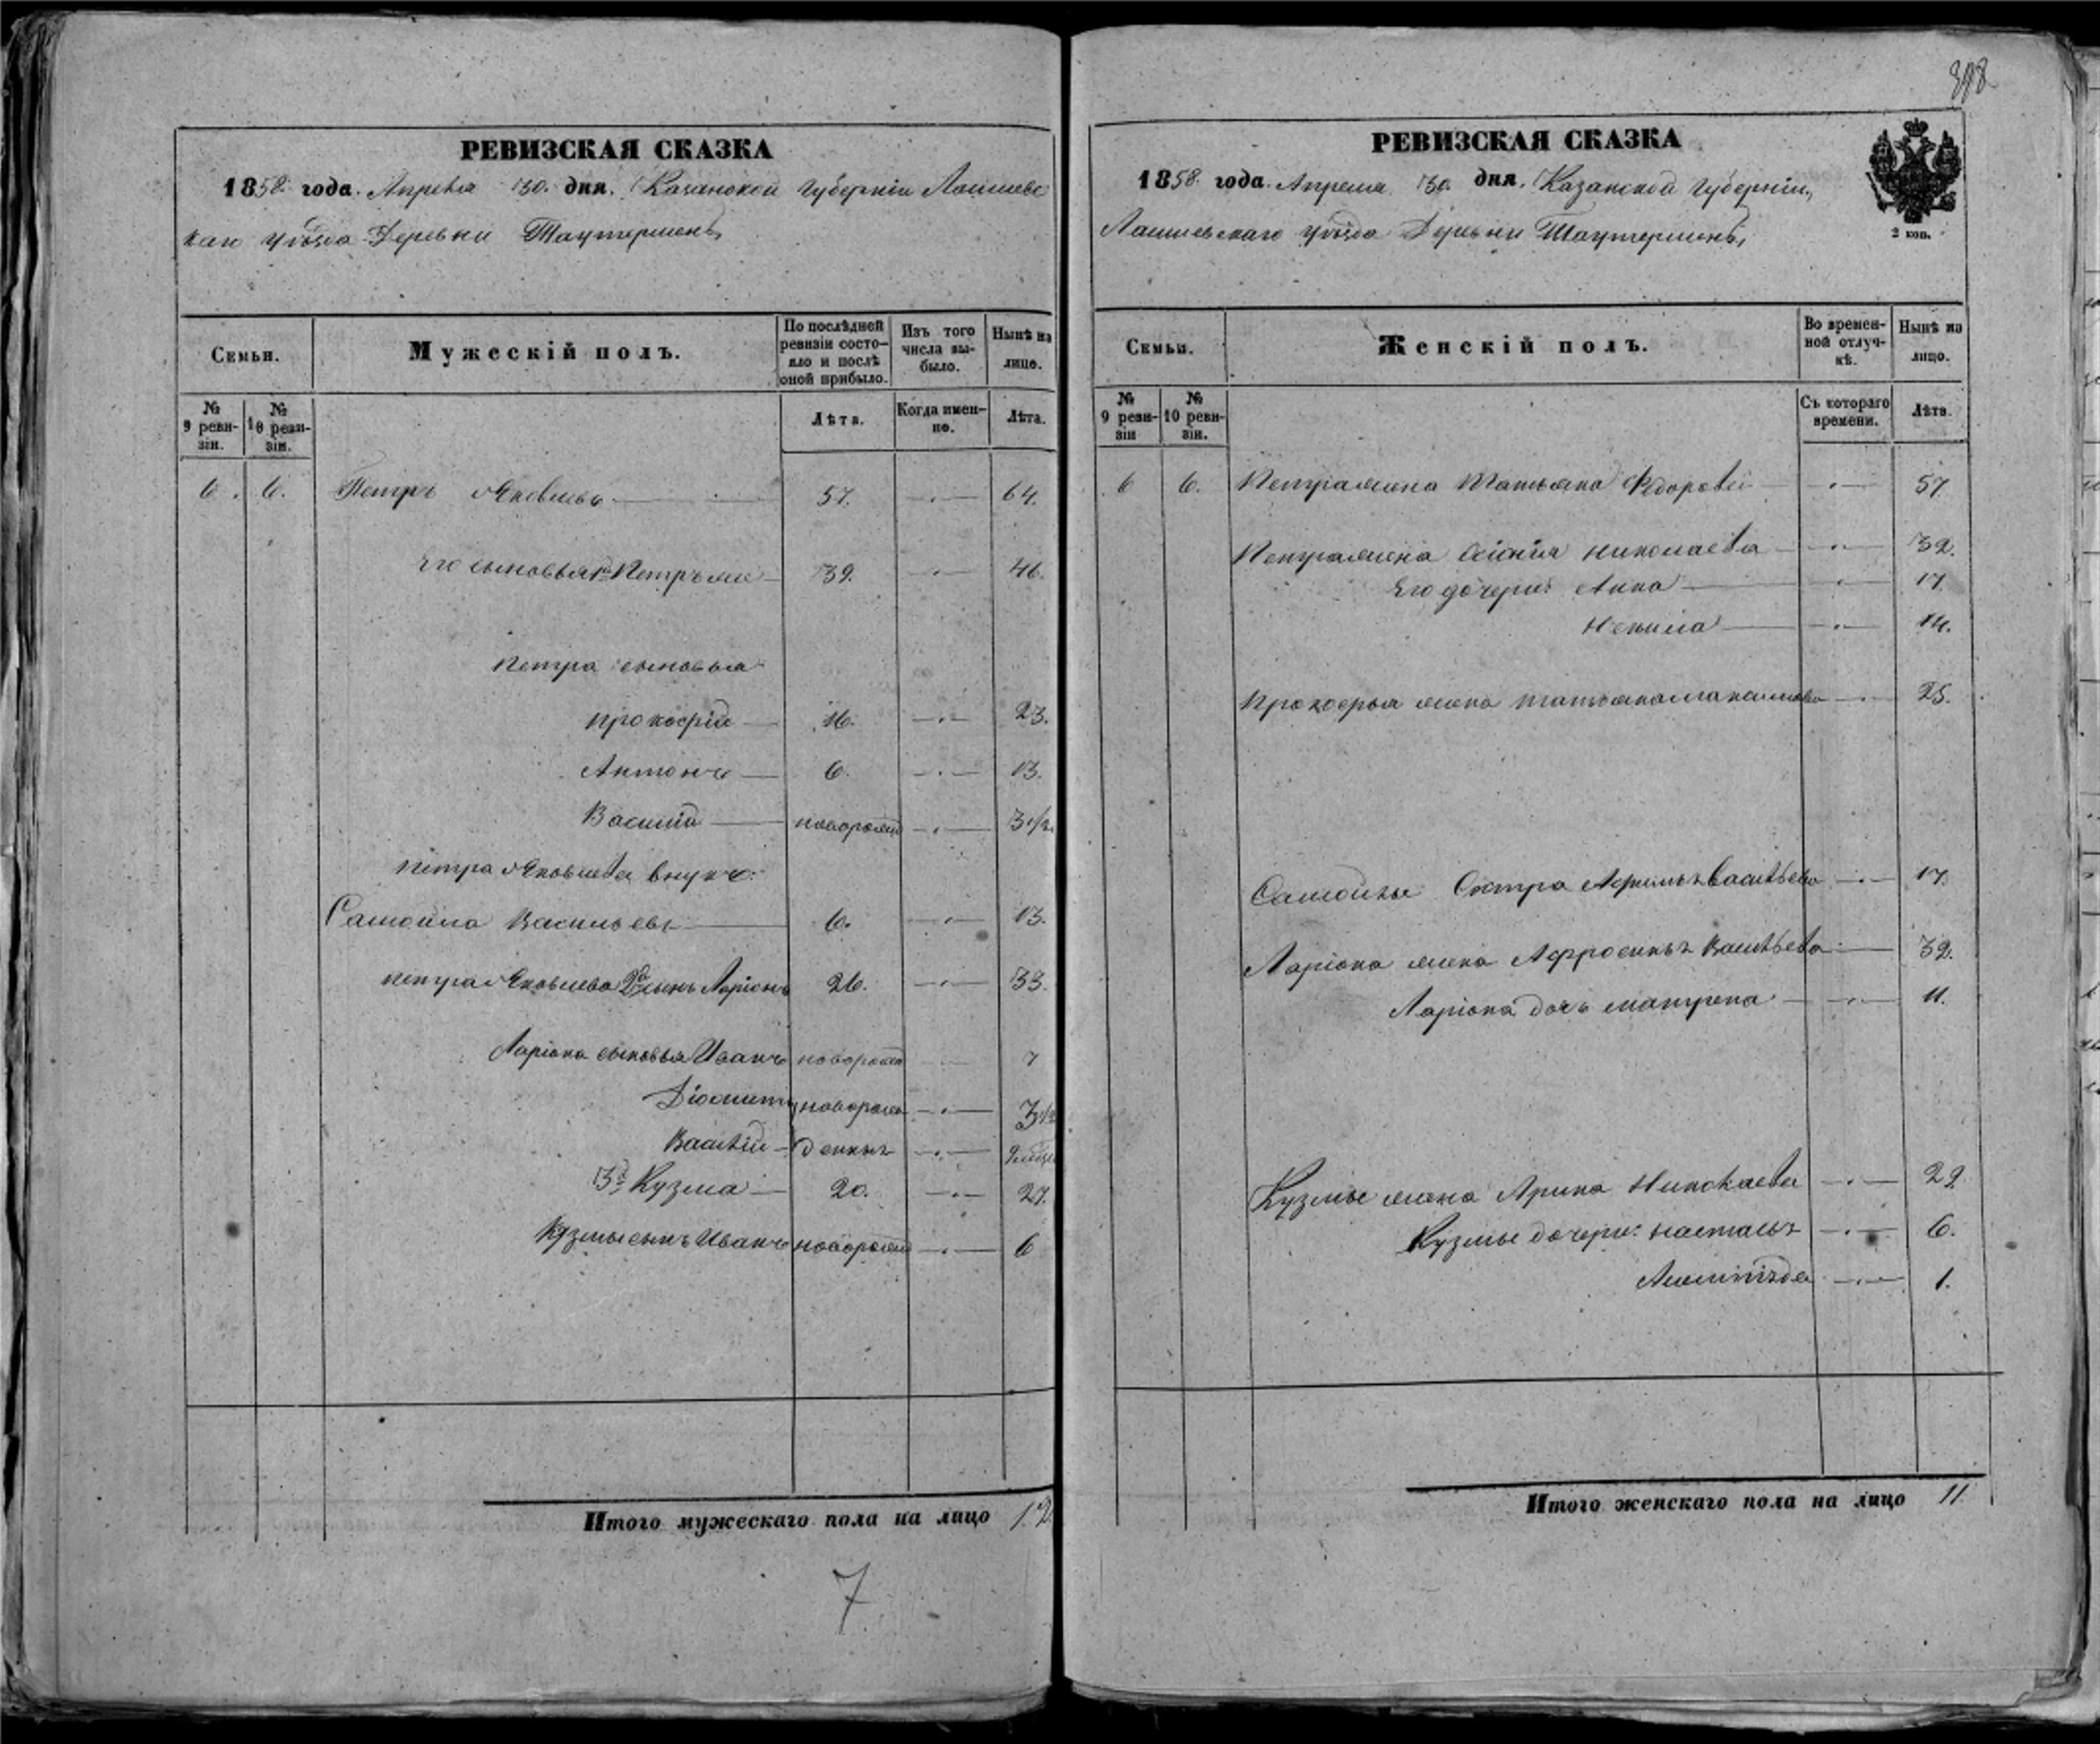 РЕВИЗСКАЯ СКАЗКА
1858. года. Апреля 30. дня. Казанской Губерніи Лаишевс
каго Уѣзда Деревни Таутерменъ
Семьи.
Мужескій полъ.
По послѣдней ревизіи состояло и послѣ оной прибыло.
Изъ того числа выбыло.
Нынѣ на лицо.
№ 9 ревизіи.
№ 10 ревизіи.
Лѣта.
Когда именно.
Лѣта.
6. 6. Петръ Яковлевъ 57. 64.
Его сыновья 1й Петръ же 39. 46.
Петра сыновья
Прокофій 16. 23.
Антонъ 6. 13.
Василій новорожд 3 1/2
Петра Яковлева внукъ:
Самойла Васильевъ 6. 13.
Петра Яковлева 2й сынъ Ларіонъ 26. 33.
Ларіона сыновья Иванъ новорожд 7
новорожд 3 1/2
Василій
3й Кузма 20. 27.
Кузмы сынъ Иванъ новорожд 6
Итого мужескаго пола на лицо 12
7
398
РЕВИЗСКАЯ СКАЗКА
1858. года. Апреля 30. дня. Казанской Губерніи,
Лаишевскаго Уѣзда Деревни Таутерменъ,
2 коп.
Семьи.
Женскій полъ.
Во временной отлучкѣ.
Нынѣ на лицо.
№ 9 ревизіи
№ 10 ревизіи.
Съ котораго времени.
Лѣта.
6 6. Петра жена Татьяна Федорова 57
Петра жена Николаева 39.
Его дочери: Анна 17.
14.
Прокофья жена Татьяна Максимова 25.
Самойлы Сестра Васильева 17.
Ларіона жена Афросинья Васильева 32.
Ларіона дочь Матрена 11.
Кузмы жена Арина Николаева 29.
Кузмы дочери: Настасья 6.
1.
Итого женскаго пола на лицо 11.